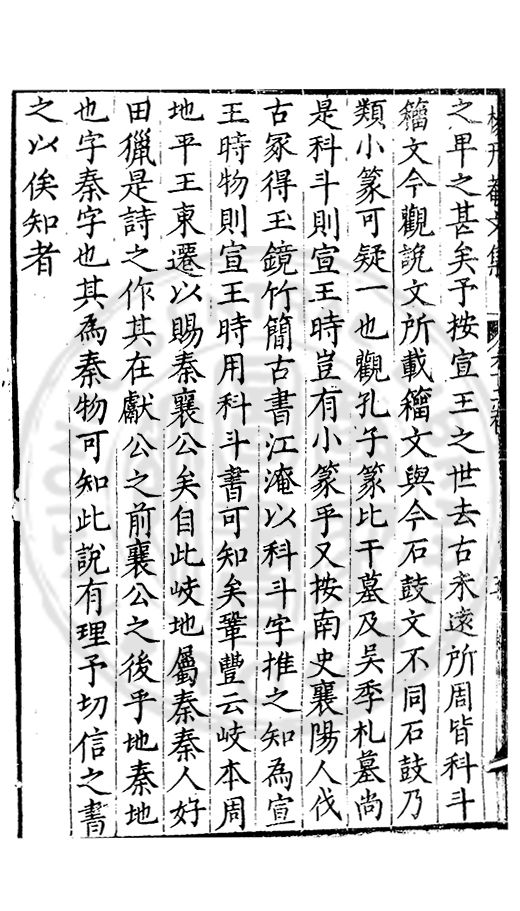 之卑之甚矣予按宣王之世去古未遠所周皆科斗
籀文今觀說文所載籀文與今石鼓文不同石鼓乃
類小篆可疑一也觀孔子篆比干墓及吴季札墓尚
是科斗則宣王時豈有小篆乎又按南史襄陽人伐
古冢得玉鏡竹簡古書江淹以科斗字推之知為宣
王時物則宣王時用科斗書可知矣鞏豐云岐本周
地平王東遷以賜秦襄公矣自此岐地屬秦秦人好
田獵是詩之作其在獻公之前襄公之後乎地秦地
也字秦字也其為秦物可知此說有理予切信之書
之以俟知者